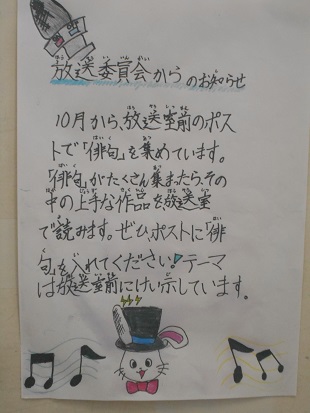 放送委員会からのお知らせ
10月から、放送室前のポス
トで「俳句」を集めています。
「俳句」がたくさん集まったら、その
中の上手な作品を、放送室
で読みます。ぜひ、ポストに「俳
句」を入れてください！テーマ
は放送室前にけい示しています。